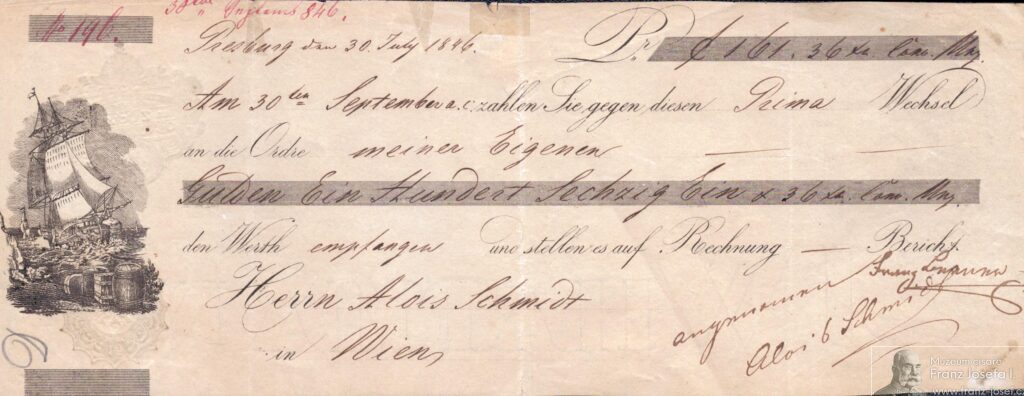 No 196.
846.
Presburg den 30. July 1846. Pr. f 161. 36 xa. Con. Mz.
Am 30ten September a.c. zahlen Sie gegen diesen Prima Wechsel
an die Ordre meiner Eigenen
Gulden Ein Hundert Sechzig Ein & 36 xa. Con. Mz.
den Werth empfangen und stellen es auf Rechnung — Bericht.
Herrn Alois Schmidt
Franz
angenomen
Alois Schmid
in Wien
Muzeum císaře
Franz Josefa I
www.franz-josef.c